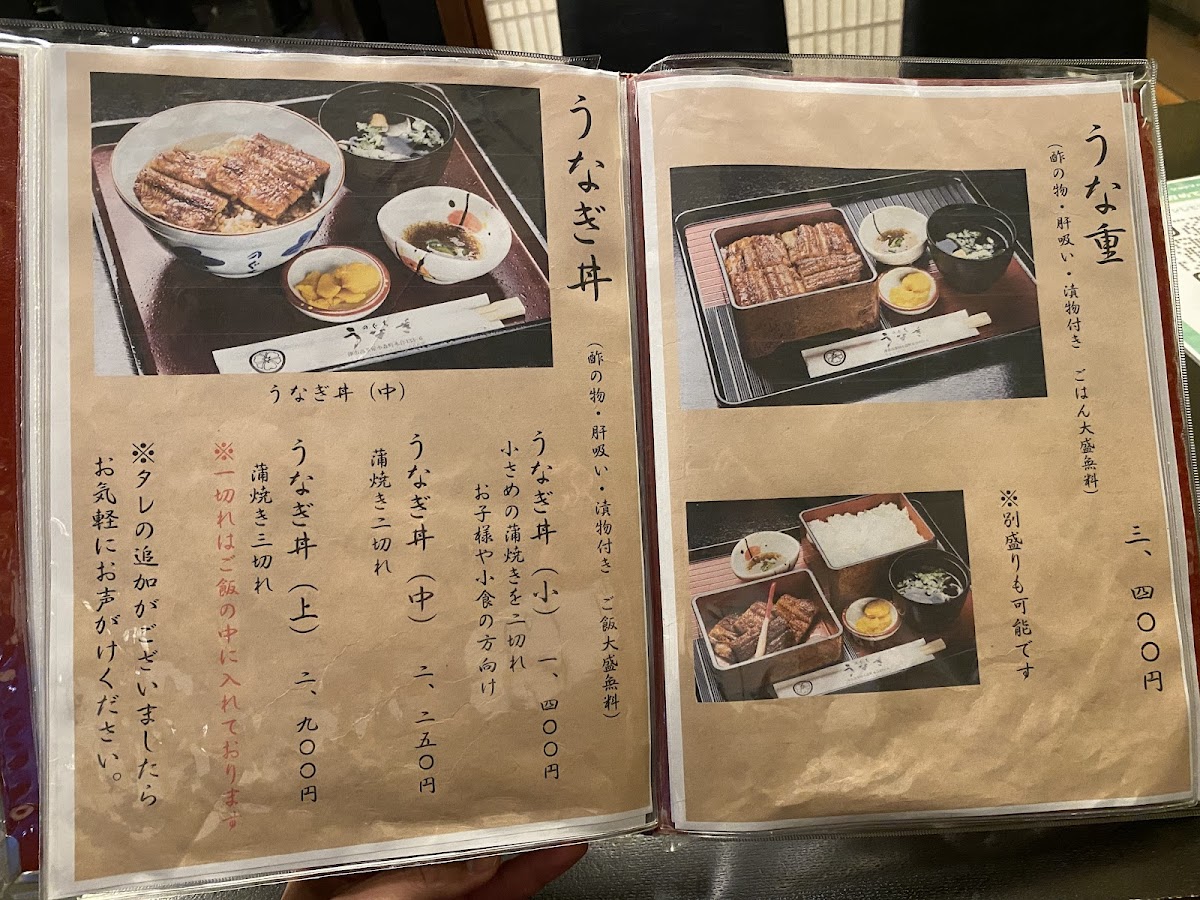 うな重
(酢の物・肝吸い・漬物付き ごはん大盛無料)
三、四〇〇円
※別盛りも可能です
うなぎ
うなぎ
うなぎ丼
(酢の物・肝吸い・漬物付き ご飯大盛無料)
のぐち
うなぎ
うなぎ丼(中)
うなぎ丼(小) 一、四〇〇円
小さめの蒲焼きを二切れ
お子様や小食の方向け
うなぎ丼(中) 二、二五〇円
蒲焼き二切れ
うなぎ丼(上) 二、九〇〇円
蒲焼き三切れ
※一切れはご飯の中に入れております
※タレの追加がございましたら
お気軽にお声がけください。